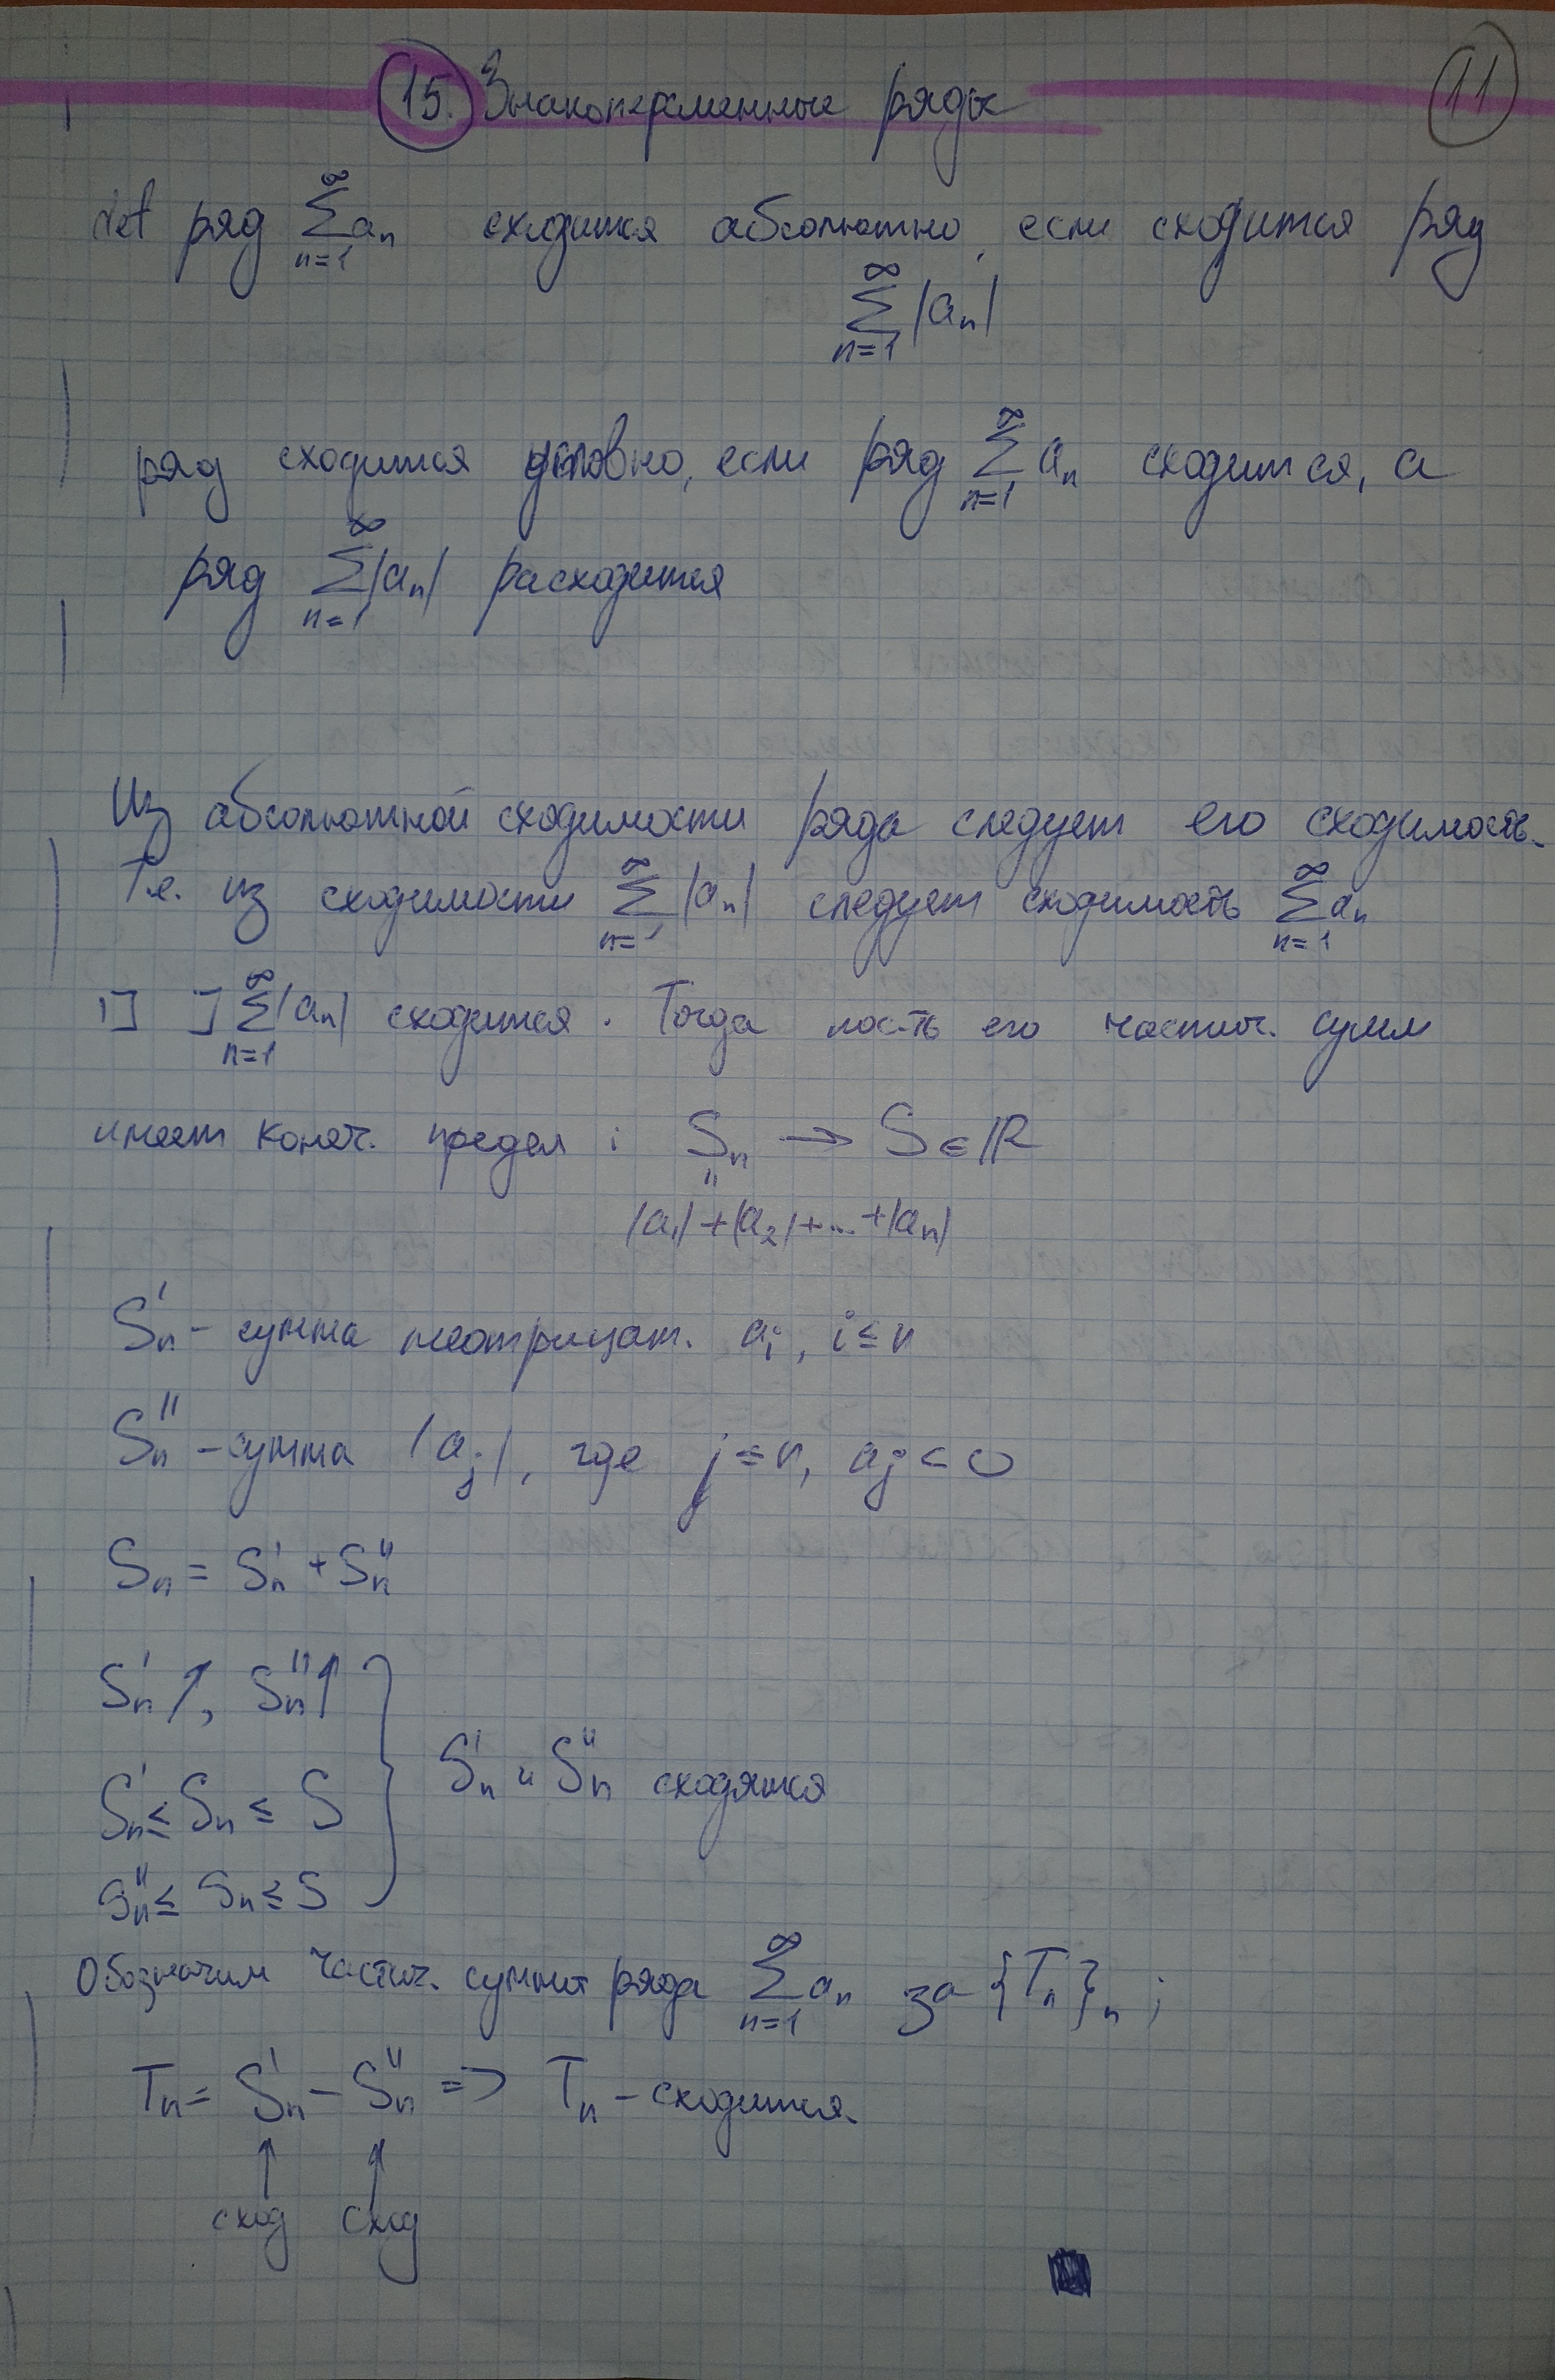 15. Знакопеременные ряды 11
def ряд ∑_{n=1}^{∞} aₙ сходится абсолютно, если сходится ряд
∑_{n=1}^{∞} |aₙ|
ряд сходится условно, если ряд ∑_{n=1}^{∞} aₙ сходится, а
ряд ∑_{n=1}^{∞} |aₙ| расходится
Из абсолютной сходимости ряда следует его сходимость.
Т.е. из сходимости ∑_{n=1}^{∞} |aₙ| следует сходимость ∑_{n=1}^{∞} aₙ
] ∑_{n=1}^{∞} |aₙ| сходится. Тогда пос-ть его частич. сумм
имеет конеч. предел : Sₙ → S ∈ ℝ
"
|a₁| + |a₂| + ... + |aₙ|
Sₙ' – сумма неотрицат. aᵢ, i ≤ n
Sₙ'' – сумма |aⱼ|, где j ≤ n, aⱼ < 0
Sₙ = Sₙ' + Sₙ''
Sₙ' ↑, Sₙ'' ↑
Sₙ' ≤ Sₙ ≤ S } Sₙ' и Sₙ'' сходятся
Sₙ'' ≤ Sₙ ≤ S
Обозначим частич. суммы ряда ∑_{n=1}^{∞} aₙ за {Tₙ}ₙ ;
Tₙ = Sₙ' – Sₙ'' => Tₙ – сходится.
↑ ↑
сход сход